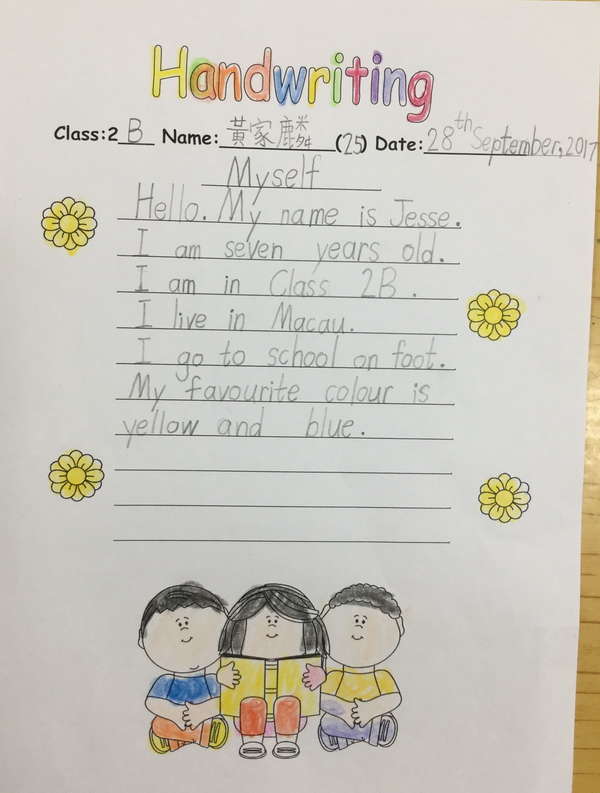 Handwriting
Class:2 B Name: 黃家麟 (25) Date: 28th September, 2017
Myself
Hello. My name is Jesse.
I am seven years old.
I am in Class 2B .
I live in Macau.
I go to school on foot.
My favourite colour is
yellow and blue.